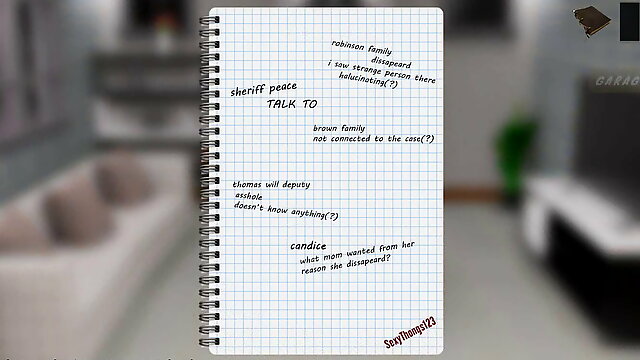 robinson family
dissapeard
i saw strange person there
halucinating(?)
sheriff peace
TALK TO
brown family
not connected to the case(?)
thomas will deputy
asshole
doesn't know anything(?)
candice
what mom wanted from her
reason she dissapeard?
SexyThongs123
GARAG